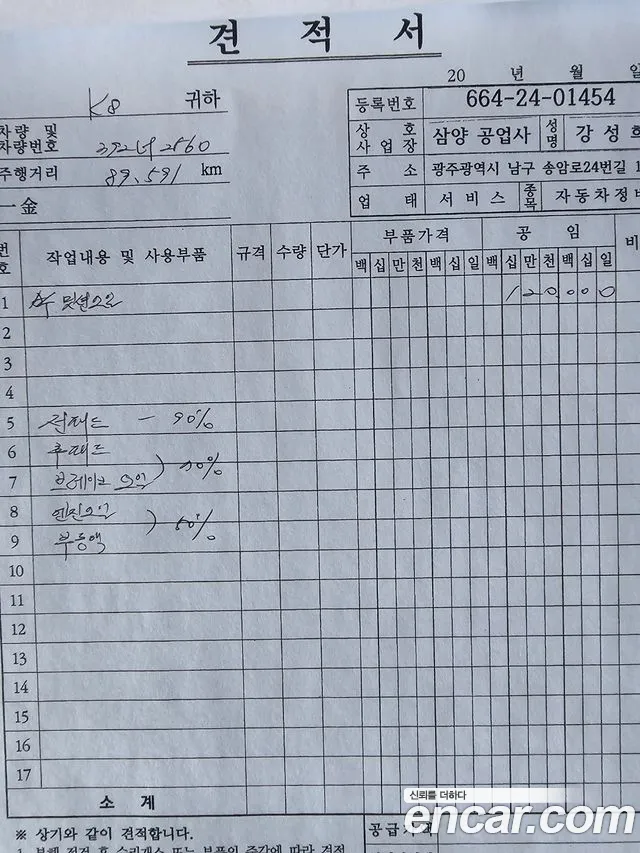 견 적 서
20 년 월 일
K8 귀하
등록번호 664-24-01454
차량 및
차량번호
상 호
사 업 장 삼양 공업사 성명 강 성
주행거리 89,591 km
주 소 광주광역시 남구 송암로24번길 1
一金
업 태 서 비 스 종목 자동차정비
번호 작업내용 및 사용부품 규격 수량 단가 부품가격 공 임 비
백 십 만 천 백 십 일 백 십 만 천 백 십 일
1 밋션오일 120000
2
3
4
5 전패드 - 90%
6 후패드
7 브레이크 오일 ) 70%
8 엔진오일
9 부동액 ) 60%
10
11
12
13
14
15
16
17
소 계
※ 상기와 같이 견적합니다.
공급가액
1. 분해 점검 후 수리개소 또는 부품의 증감에 따라 견적
신뢰를 더하다
encar.com